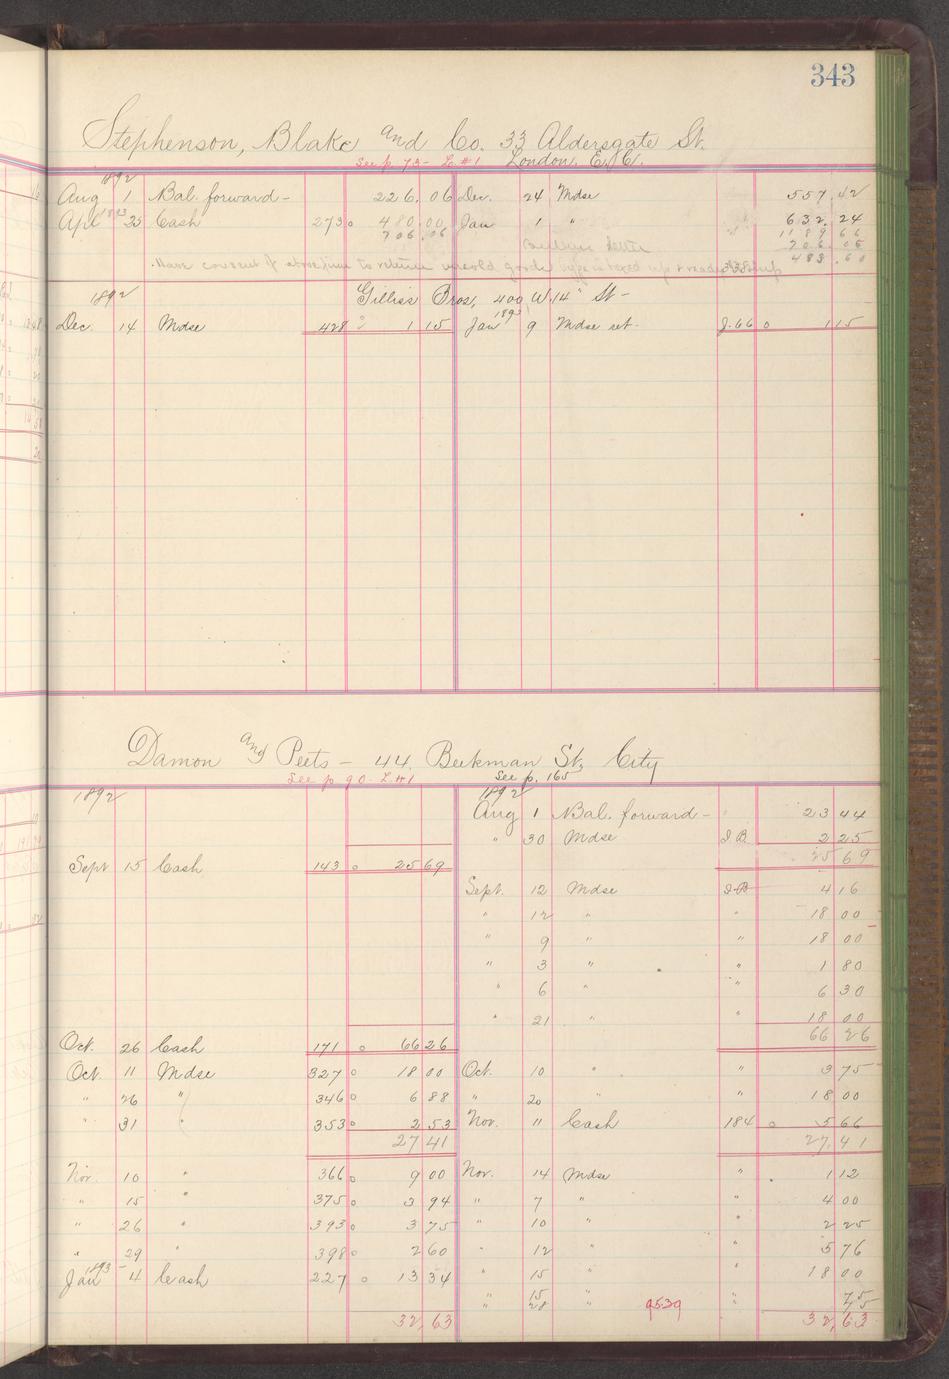 343
Stephenson, Blake and Co. 33 Aldersgate St.
See p. 73 - L. #1 London, E. C.
1892
Aug 1 Bal. forward - 226.06 Dec. 24 Mdse 557.42
Apr 1893 25 Cash 273 o 480.00 Jan 1 " 632.24
706.06 1189 66
Balance Letter 706.06
483.60
Have consent of above firm to return unsold goods
1892 Gillis Bros, 400 W. 14" St -
Dec. 14 Mdse 428 o 1 15 Jan 1893 9 Mdse ret. J. 66 o 1 15
Damon and Peets - 44. Beekman St. City
See p 90. L #1 See p. 165
1892 1892
Aug 1 Bal. forward - 23 44
" 30 Mdse I.B. 2 25
Sept 15 Cash 143 o 25 69 25 69
Sept. 12 Mdse I.B. 4 16
" 12 " " 18 00
" 9 " " 18 00
" 3 " " 1 80
" 6 " " 6 30
" 21 " " 18 00
Oct. 26 Cash 171 o 66 26 66 26
Oct. 11 Mdse 327 o 18 00 Oct. 10 " " 3 75
" 26 " 346 o 6 88 " 20 " " 18 00
" 31 " 353 o 2 53 Nov. 11 Cash 184 o 5 66
27 41 27,41
Nov. 10 " 366 o 9 00 Nov. 14 Mdse " 1 12
" 15 " 375 o 3 94 " 7 " " 4 00
" 26 " 393 o 3 75 " 10 " " 2 25
" 29 " 398 o 2 60 " 12 " " 5 76
Jan 1893 4 Cash 227 o 13 34 " 15 " " 18 00
" 15 " " 75
" 28 " 9539 " 75
32,63 32,63